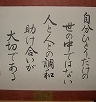 自分ひとりだけの
世の中ではない
人と人との調和
助け合いが
大切である